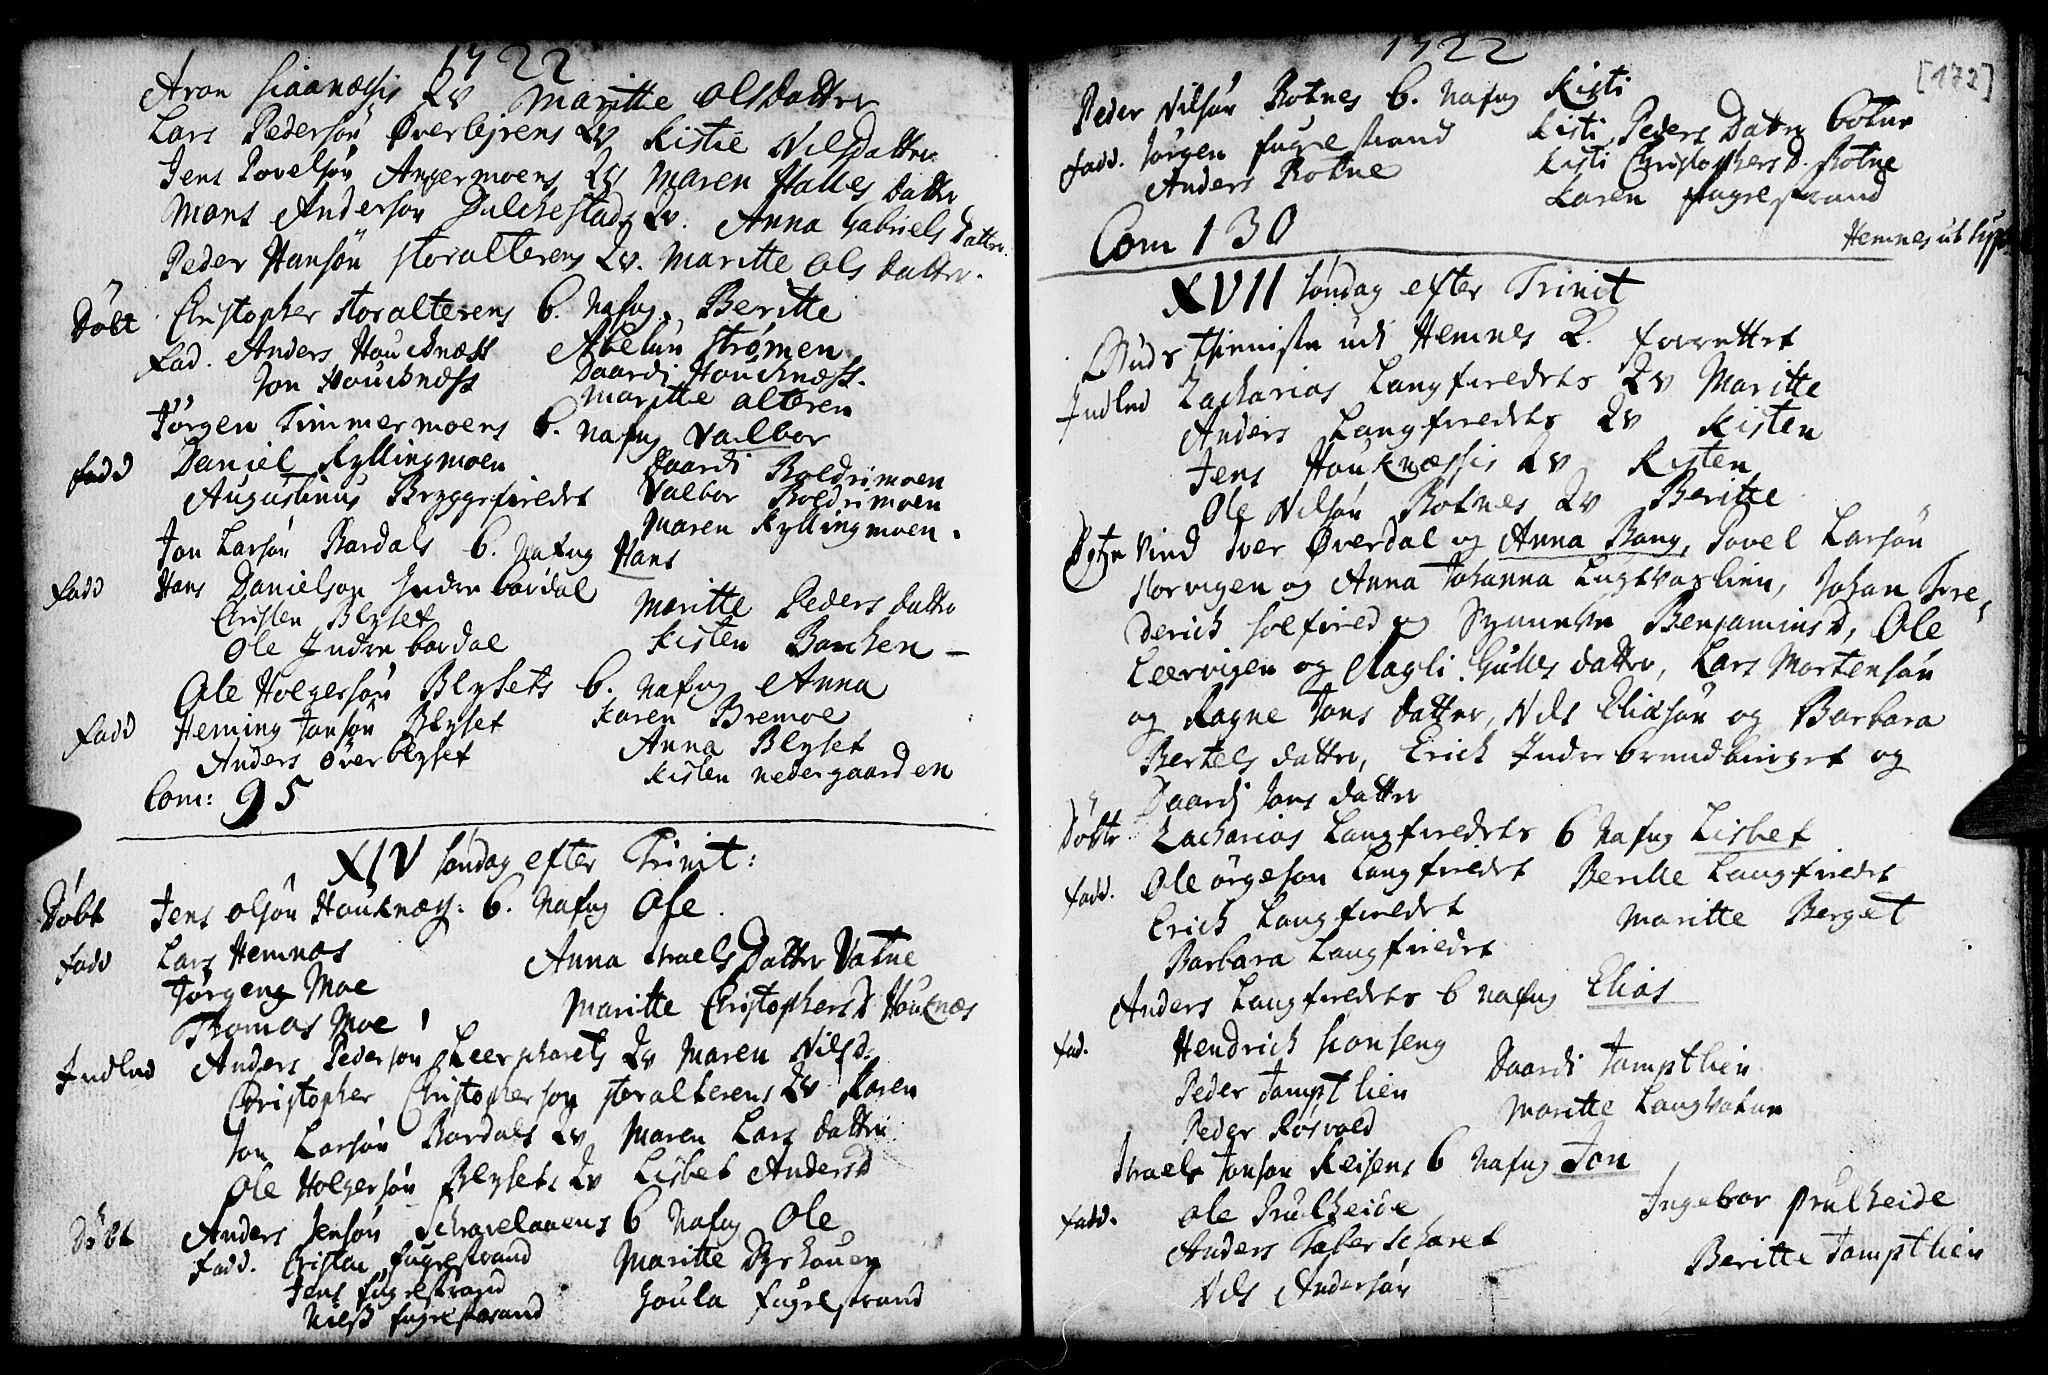 1722
Aron Siaanæssis Qv Maritte Olsdatter
Lars Pedersön Øverlejrens Qv Kistie Nilsdatter
Jens Povelsön Angermoens Qv Maren Halles datter
Mons Anderson Dulchestads Qv. Anna Gabriels datter.
Peder Hansön Storalterens Qv. Maritte Ols datter.
Döbt Christopher Storalterens b. nafng. Beritte
fad. Anders Houchnæss Abelün Strømen
Jon Houchnæss Daardi Houchnæss.
Maritte Alteren
Jörgen Timmermoens b. nafng Valbor
fadd Daniel Kyllingmoen Daardi Boldrimoen
Augustinus Bryggefieldet Valbor Boldrimoen
Maren Kyllingmoen.
Jon Larsön Bardals b. nafng Hans
fadd Hans Danielson Indre bardal Maritte Peders datter
Christen Blyset
Ole Indre bardal Kisten Banchen
Ole Holgersön Blysets b. nafng Anna
fadd Heming Jonsön Blyset Karen Bremoe
Anders Överblyset Anna Blyset
Kisten Nedergaarden
Com: 95
XIV Söndag efter Trinit:
Döbt Jens Olsön Houknæs: b. nafng Ole.
fadd Lars Hemnæs Anna Israels Datter Vatne
Jörgen Moe Maritte Christophersd Houknæs
Thomas Moe
Indled Anders Pederson Leerskarets Qv Maren Nilsd.
Christopher Christopherson Storalterens Qv Karen
Jon Larsön Bardals Qv Maren Lars datter
Ole Holgersön Blysets Qv Lisbet Andersd
Döbt Anders Jensön Schravelaaens b nafng Ole
fadd. Cristen Fugrestrand Maritte Dyrhouen
Jens Fugrestrand Goula Fugrestrand
Nilss Fugrestrand
1722
[172]
Peder Nilsön Botnes b. nafng Kisti
fadd. Jörgen Fugrestrand Kisti Peders Datter Botne
Anders Botne Kisti Christophersd. Botne
Karen Fugrestrand
Com 130
Hemnes ut supr
XVII Söndag efter Trinit
Guds thienisten udi Hemnes K. forrettet
Indled Zacharias Langfieldets Qv Maritte
Anders Langfieldets Qv Kisten
Jens Houknæssis Qv Kisten
Ole Nilsön Botnes Qv Beritte
Iver Överdal og Anna Bang, Povel Larsön
Storvigen og Anna Johanna Lugtvaslien, Johan Fre
derich Solfield og Synneve Benjaminsd, Ole
Leervigen og Magli Gulles datter, Lars Mortensön
og Ragne Jons datter, Nils Eliasön og Barbara
Bertels datter, Erich Indrebrendbierget og
Daardi Jons datter
Döbte Zacharias Langfieldets b nafng Lisbet
fadd. Ole Örgeson Langfieldet Berille Langfieldet
Erich Langfieldet Maritte Berget
Barbara Langfieldet
Anders Langfieldets b nafng Elias
fad. Hendrich Sionseng Daardi Tamptlien
Peder Tamptlien Maritte Langvatne
Peder Rösvold
Israels Jonson Keisens b nafng Jon
fadd. Ole Prulheide Ingebor Prulheide
Anders Taberscharet Beritte Tamptlien
Nils Andersön